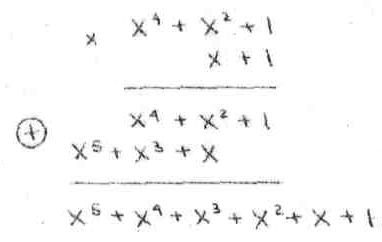 x⁴ + x² + 1
× x + 1
x⁴ + x² + 1
⊕ x⁵ + x³ + x
x⁵ + x⁴ + x³ + x² + x + 1